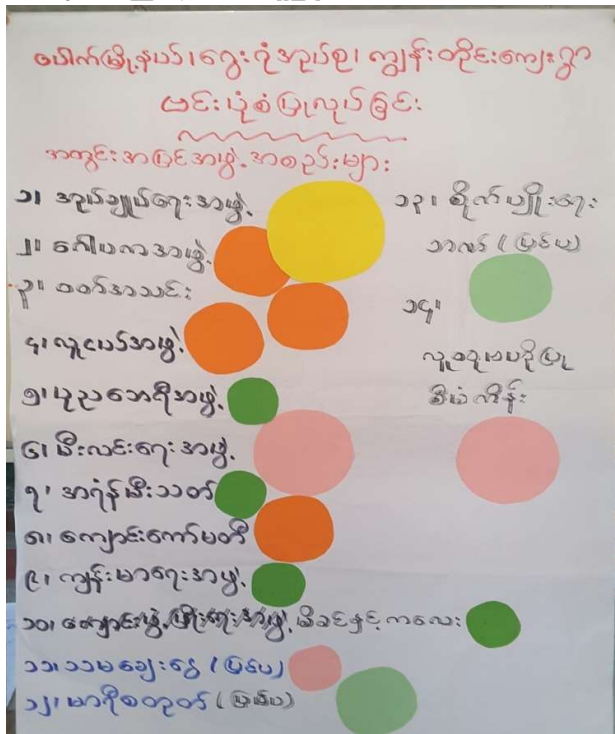 ပေါက်မြို့နယ်၊ ရွေးရုံအုပ်စု၊ ကျွန်းတိုင်းကျေးရွာ
ဗင်းပုံစံပြုလုပ်ခြင်း
အတွင်းအပြင်အဖွဲ့အစည်းများ
၁၊ အုပ်ချုပ်ရေးအဖွဲ့
၂၊ ဂေါပကအဖွဲ့
၃၊ ဝတ်အသင်း
၄၊ လူငယ်အဖွဲ့
၅၊ ပုညခေရီအဖွဲ့
၆၊ မီးလင်းရေးအဖွဲ့
၇၊ အရံမီးသတ်
၈၊ ကျောင်းကော်မတီ
၉၊ ကျန်းမာရေးအဖွဲ့
၁၀၊ မိခင်နှင့်ကလေး
၁၁၊ သမချေးငွေ (ပြင်ပ)
၁၂၊ (ပြင်ပ)
၁၃၊ စိုက်ပျိုးရေး
ဘဏ် (ပြင်ပ)
၁၄၊
လူထုဗဟိုပြု
စီမံကိန်း